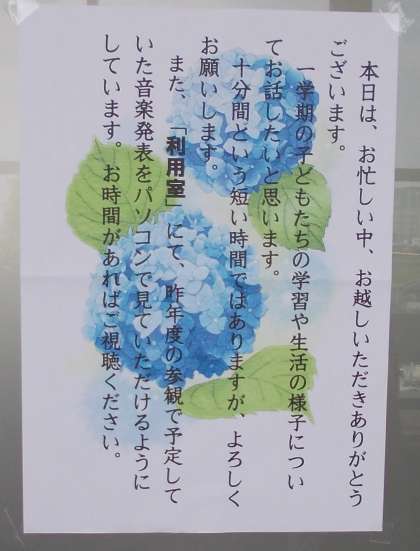 本日は、お忙しい中、お越しいただきありがとう
ございます。
一学期の子どもたちの学習や生活の様子につい
てお話したいと思います。
十分間という短い時間ではありますが、よろしく
お願いします。
また、「利用室」にて、昨年度の参観で予定して
いた音楽発表をパソコンで見ていただけるように
しています。お時間があればご視聴ください。